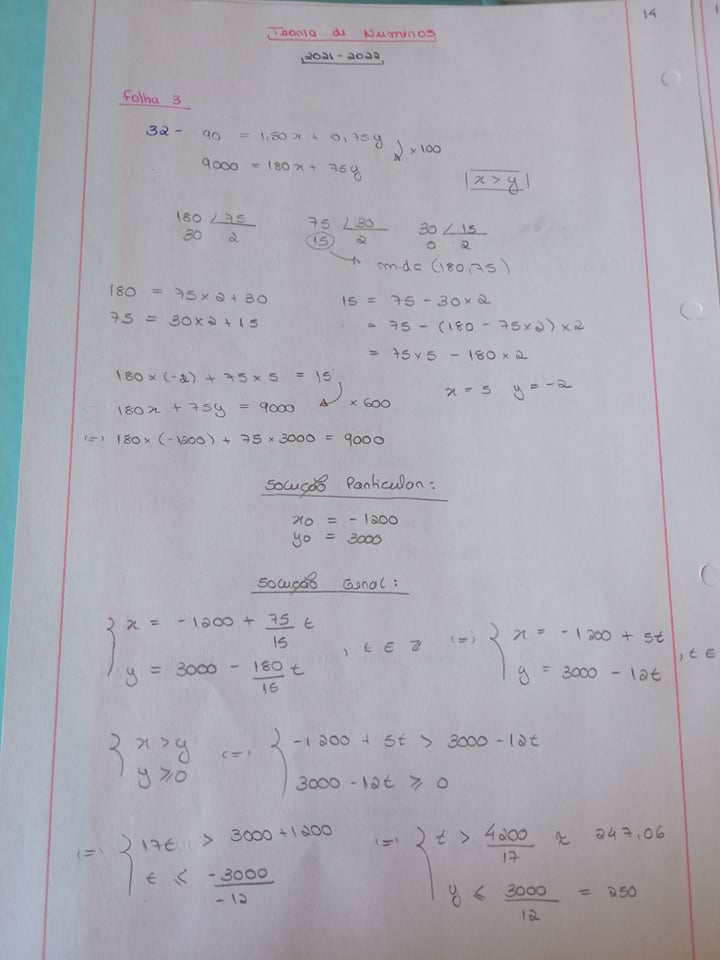 14
Teoria de Números
2021-2022
Folha 3
32- 90 = 1,80x + 0,75y
× 100
9000 = 180x + 75y
|x > y|
180 ∠ 75   75 ∠ 30   30 ∠ 15
30 2   15 2   0 2
m.d.c (180,75)
180 = 75×2+30   15 = 75 - 30×2
75 = 30×2+15   = 75 - (180 - 75×2) × 2
= 75×5 - 180×2
180×(-2) + 75×5 = 15   x = 5 y = -2
180x + 75y = 9000   × 600
(=) 180×(-1200) + 75×3000 = 9000
Solução Particular:
x0 = -1200
y0 = 3000
Solução Geral:
{ x = -1200 + 75/15 t
y = 3000 - 180/15 t , t ∈ Z (=) { x = -1200 + 5t
y = 3000 - 12t , t ∈
{ x > y (=) { -1200 + 5t > 3000 - 12t
y ≥ 0   3000 - 12t ≥ 0
(=) { 17t > 3000 + 1200 (=) { t > 4200/17 ≈ 247,06
t ≤ -3000/-12   y ≤ 3000/12 = 250